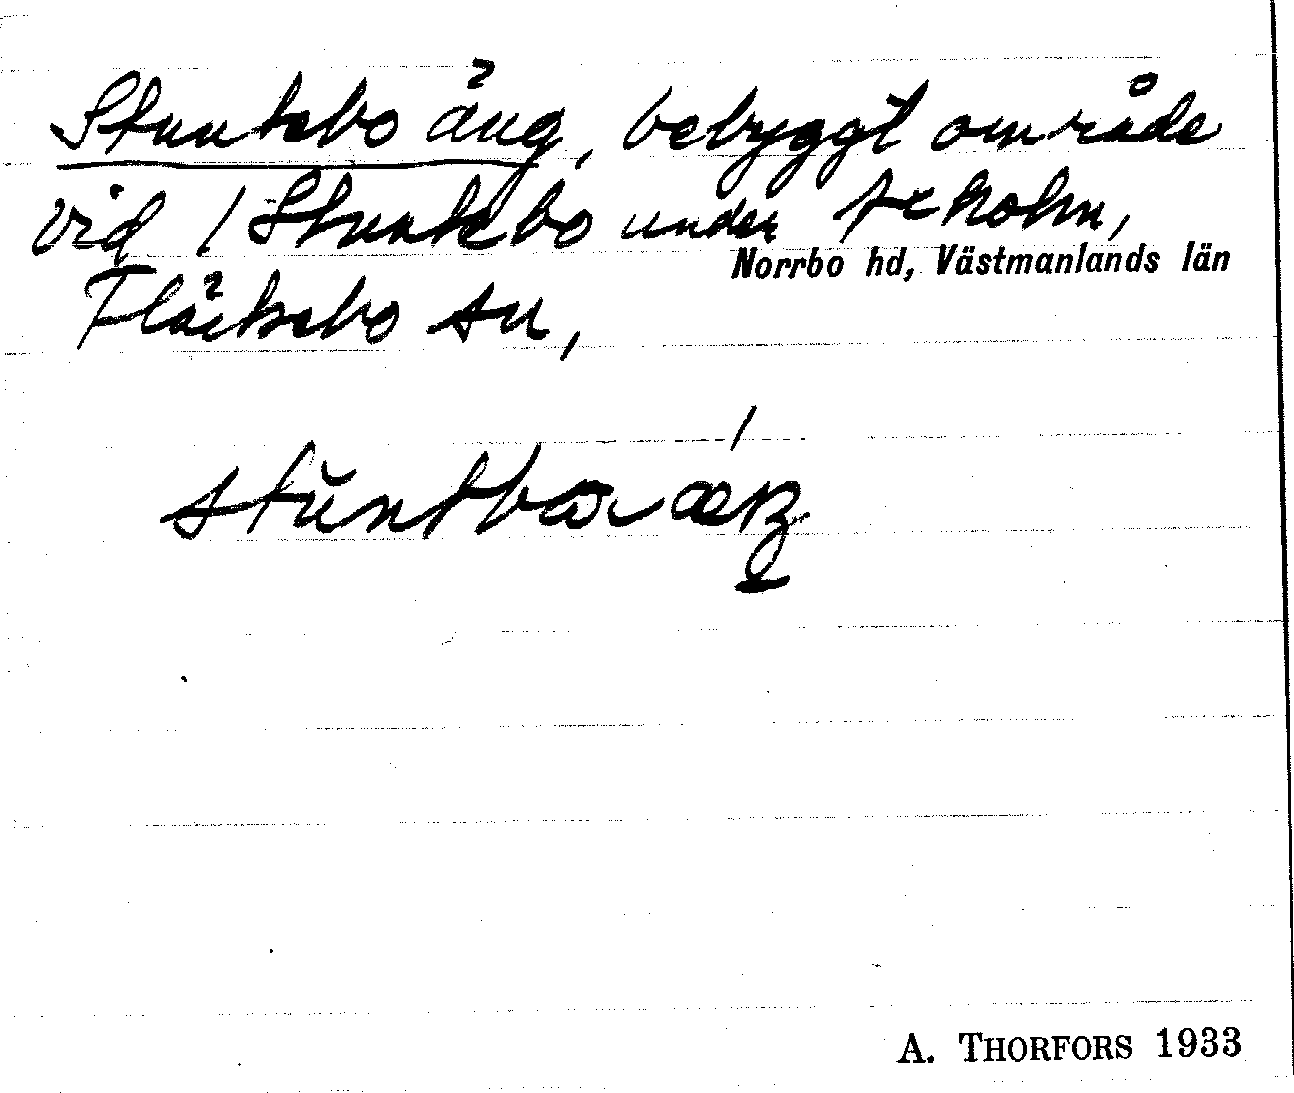 Stuntebo äng, bebyggt område
vid 1 Stuntebo under Axholm,
Norrbo hd, Västmanlands län
Fläckebo sn,
stuntbo
A. THORFORS 1933